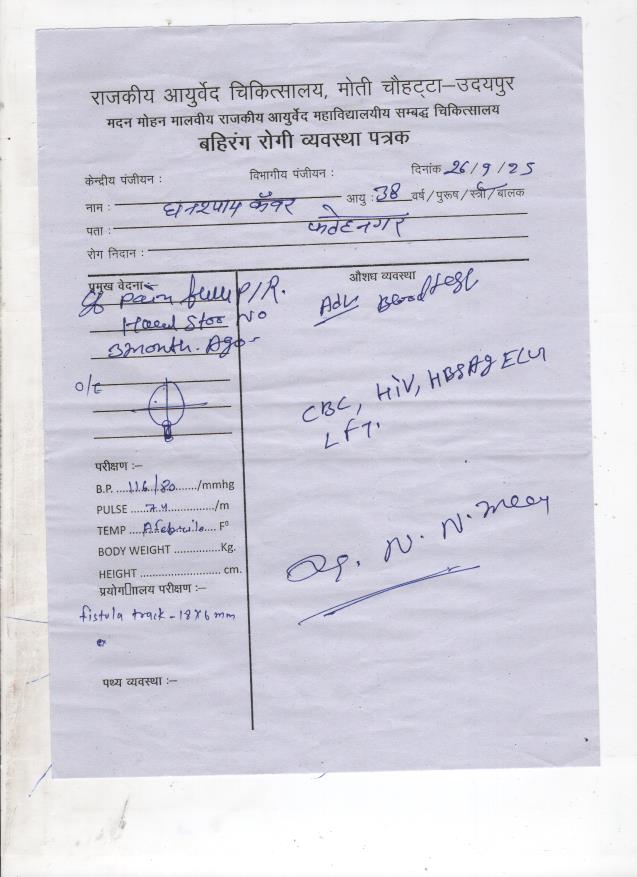 राजकीय आयुर्वेद चिकित्सालय, मोती चौहट्टा–उदयपुर
मदन मोहन मालवीय राजकीय आयुर्वेद महाविद्यालयीय सम्बद्ध चिकित्सालय
बहिरंग रोगी व्यवस्था पत्रक
केन्द्रीय पंजीयन : विभागीय पंजीयन : दिनांक 26/9/25
नाम : घनश्याम कँवर आयु : 38 वर्ष/पुरूष/स्त्री/बालक
पता : फतेहनगर
रोग निदान :
प्रमुख वेदना औशघ व्यवस्था
Pain full P/R. Adv Blood test
Hard Stor No
3 month. Ago-
O/E
CBC, HiV, HBSAg
LFT.
परीक्षण :–
B.P. 116/80 /mmhg
PULSE 74 /m
TEMP Afebrile F⁰
BODY WEIGHT Kg.
HEIGHT cm.
N. N.
प्रयोगाालय परीक्षण :–
fistula track - 18X6 mm
पथ्य व्यवस्था :–